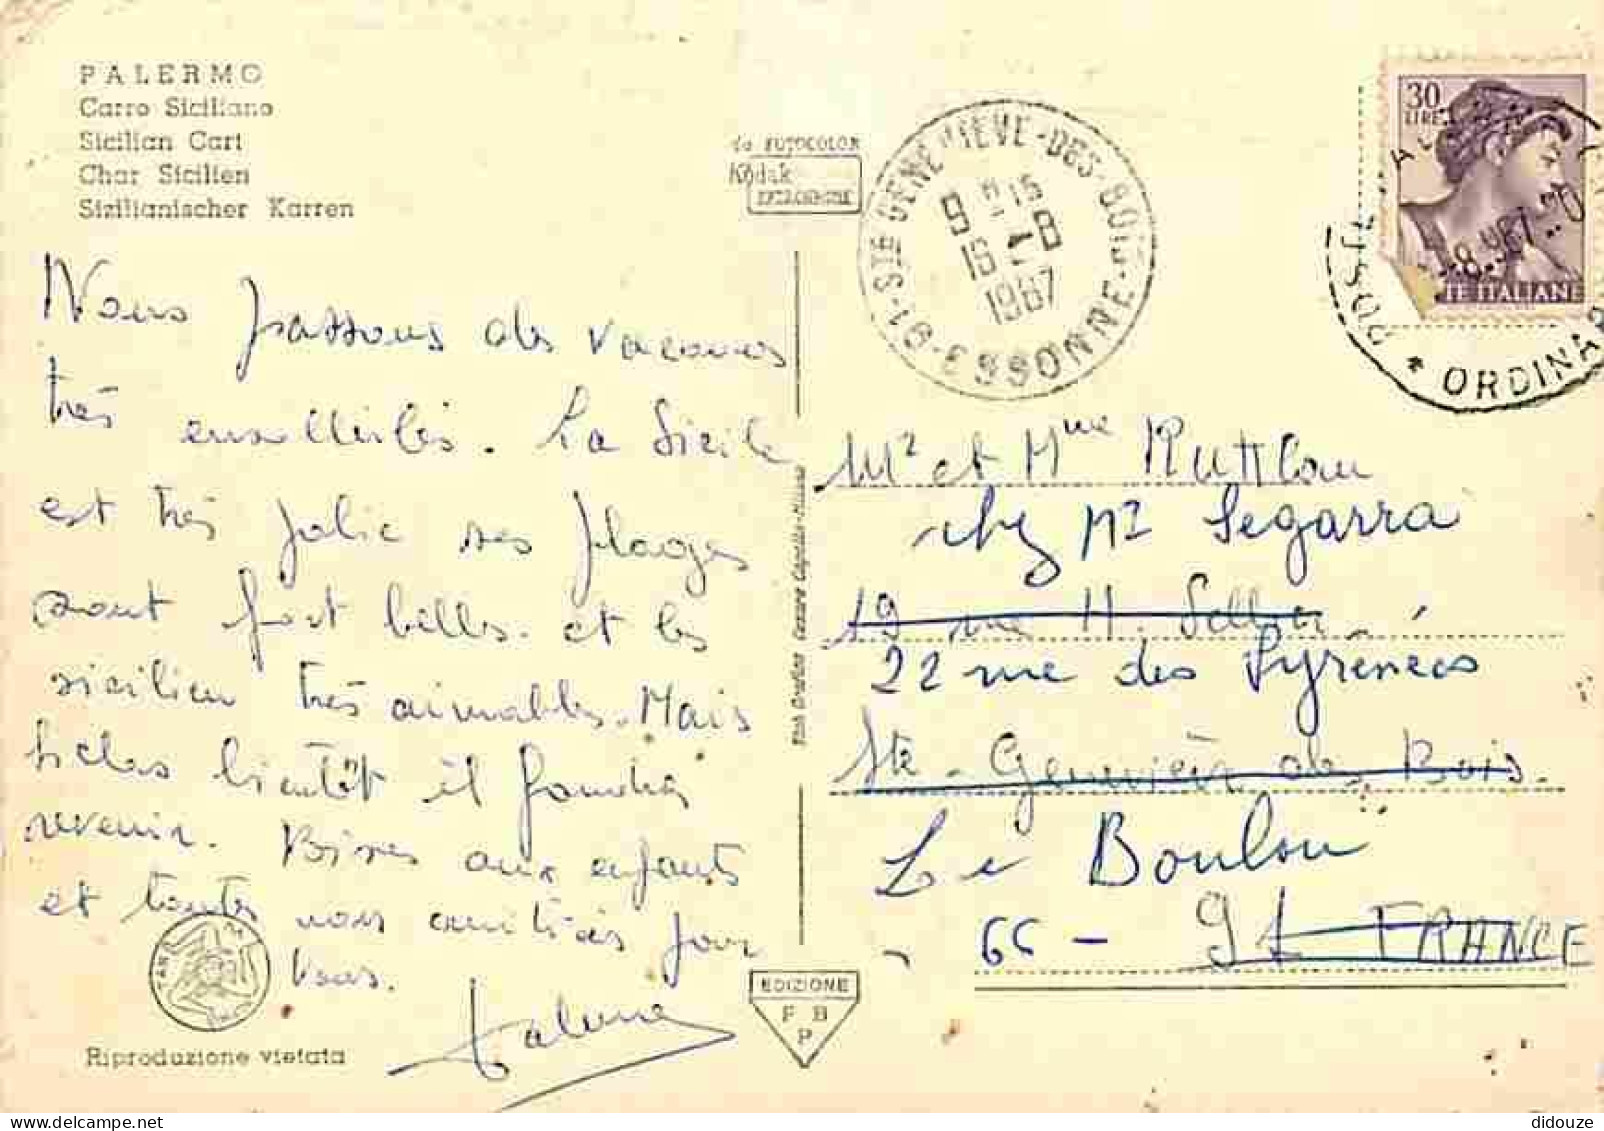 PALERMO
Carro Siciliano
Sicilian Cart
Char Sicilien
Sizilianischer Karren
da FOTOCOLOR
Kodak
EKTACHROME
91-STE GENEVIEVE-DES-BOIS
ESSONNE
16
1967
30
LIRE
POSTE ITALIANE
POSTE
* ORDINAR
8.967
Nous passons des vacances
très ensoleillées. La Sicile
est très jolie ses plages
sont fort belles et les
sicilien très aimables. Mais
hélas bientôt il faudra
revenir. Bises aux enfants
et toutes nos amitiés pour
vous.
Mr et Mme
chez Mr Segarra
19 rue H.
22 rue des Pyrénées
Ste-Geneviève des Bois.
Le Boulou
66 - 91 FRANCE
Riproduzione vietata
EDIZIONE
P B
P
didouze